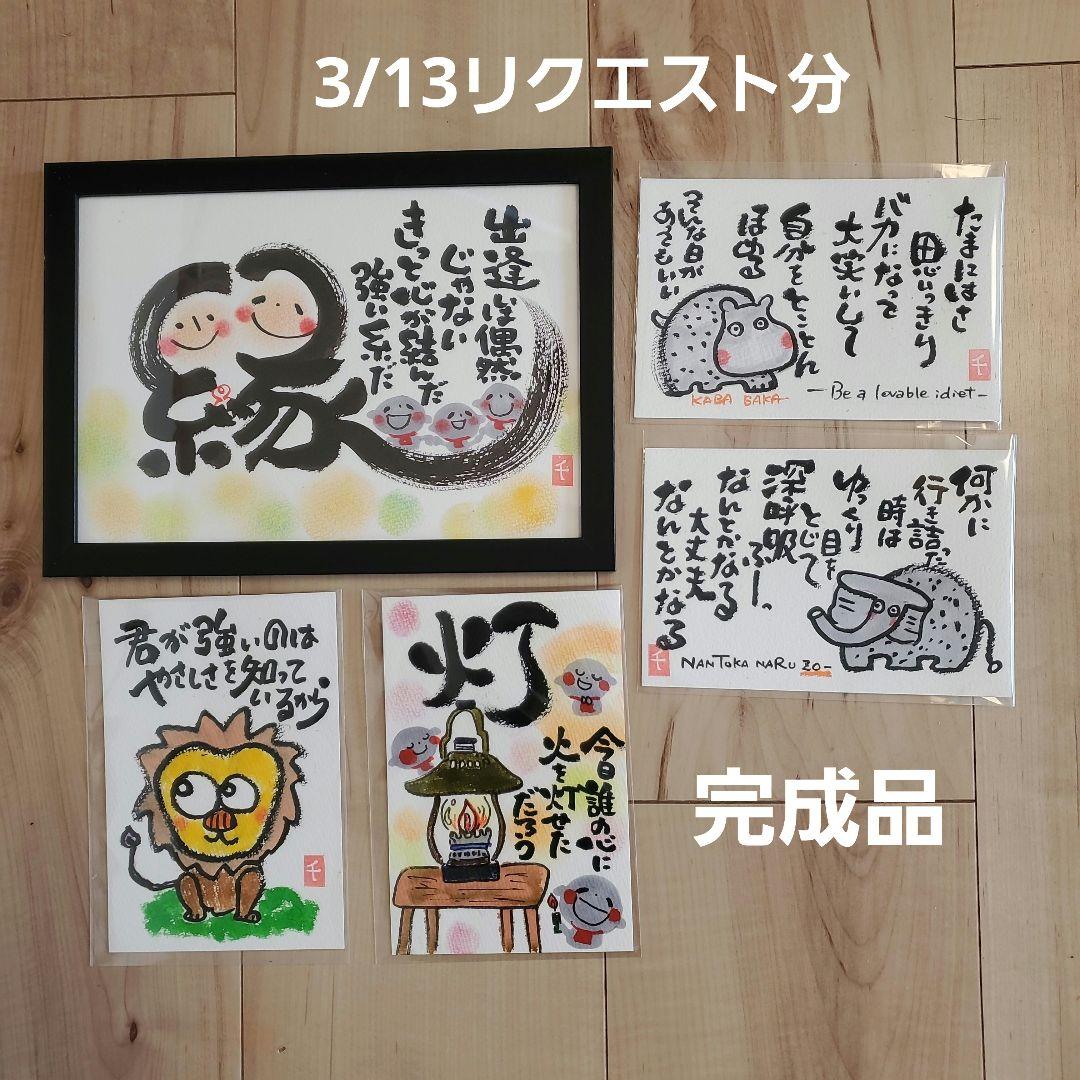 3/13リクエスト分
出逢いは偶然
じゃない
きっと心が結んだ
強い糸だ
縁
千
たまにはさ
思いっきり
バカになって
大笑いして
自分をとことん
ほめる
そんな日が
あってもいい
KABA BAKA
-Be a lovable idiet-
千
何かに
行き詰った
時は
ゆっくり
目を
とじて
深呼吸
ふーっ
なんとかなる
大丈夫
なんとかなる
NANTOKA NARU ZO-
千
君が強いのは
やさしさを知って
いるから
千
灯
今日誰の心に
火を灯せた
だろう
完成品